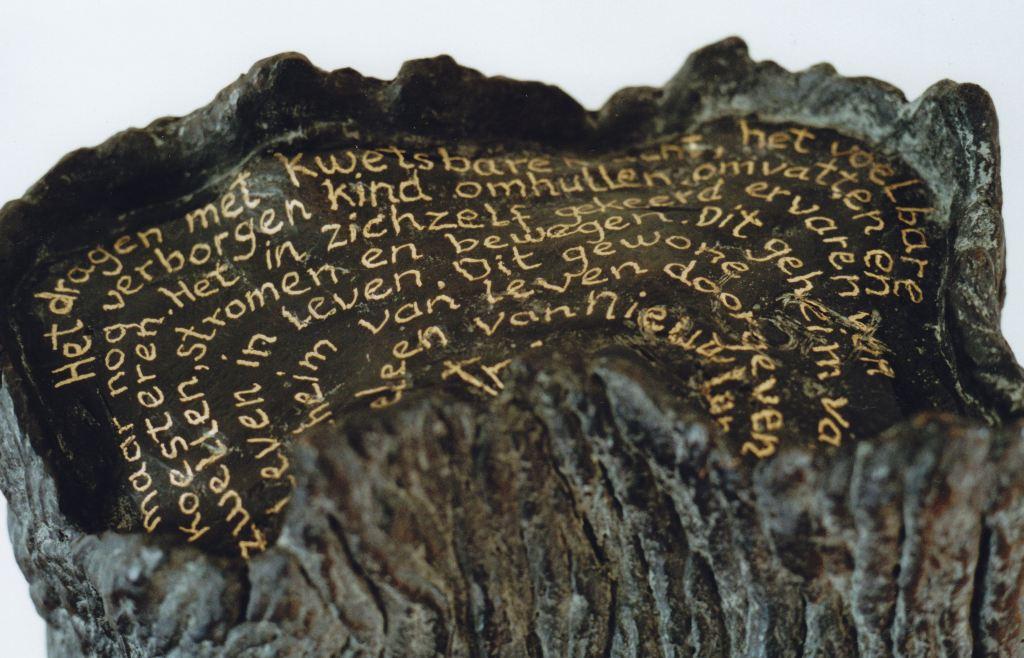 Het dragen met kwetsbare het voelbare
maar nog verborgen kind omhullen, omvatten en
koesteren. Het in zichzelf gekeerd ervaren van
zwellen, stromen en bewegen. Dit geheim va
leven in leven. Dit gewone
heim van leven doorgeven
deen van nieuw